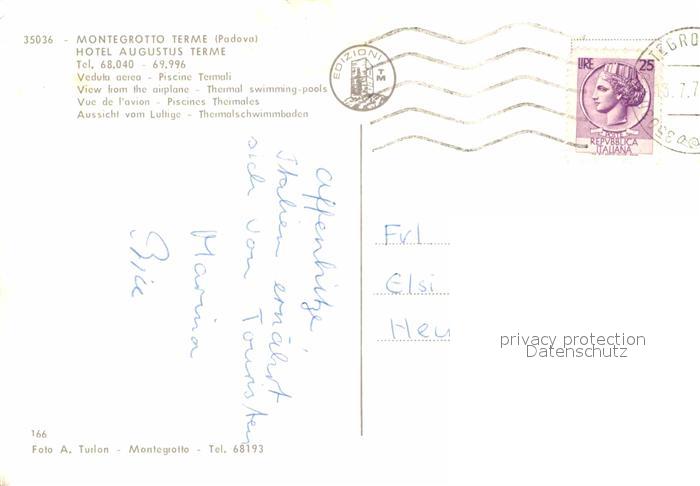 35036 - MONTEGROTTO TERME (Padova)
HOTEL AUGUSTUS TERME
Tel. 68.040 - 69.996
Veduta aerea - Piscine Termali
View from the airplane - Thermal swimming-pools
Vue de l'avion - Piscines Thermales
Aussicht vom Luftige - Thermalschwimmbaden
EDIZIONI
TM
LIRE 25
POSTE
REPVBBLICA
ITALIANA
Affenhitze
Italien ernährt
sich von Touristen
Marina
Frl
Elsi
Heu
privacy protection
Datenschutz
166
Foto A. Turlon - Montegrotto - Tel. 68193